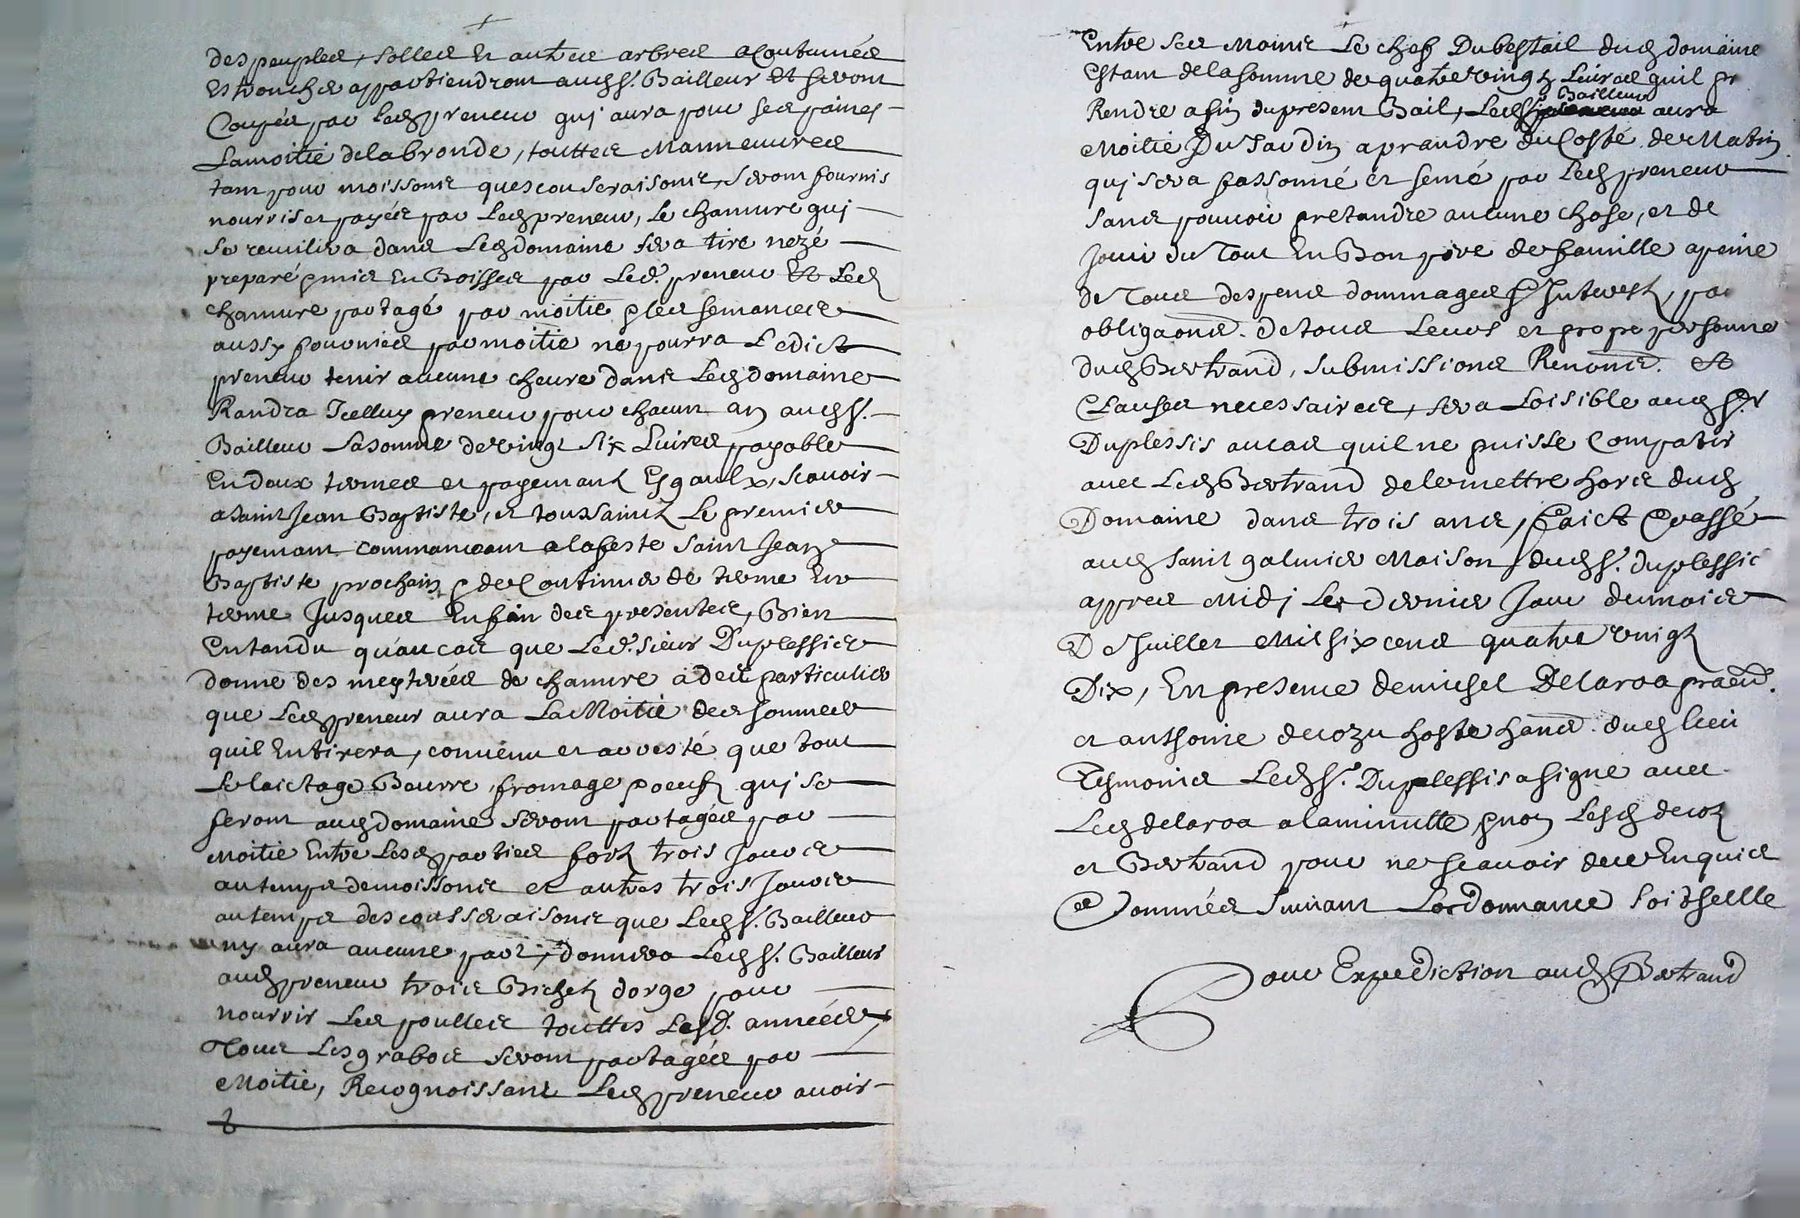 des peuples, solles et autres arbres acoutumés
Estronches appartiendront audsr. Bailleur et seront
Coupés par ledpreneur quj aura pour ses paines
La moitié de la bronde, touttes Manneuvres
tant pour moissons que scouseraisons, seront fournis
nourris et payés par Ledpreneur, Le chamure quj
Se reuilira dans Leddomaine sera tire nezé
preparé & mis En Boisses par Led. preneur Et Led
chamure partagé par moitié & les semances
aussy fournies par moitié ne pourra Ledict
preneur tenir aucune cheure dans Leddomaine
Randra Icelluy preneur pour chacun an audsr.
Bailleur La somme de vingt six Liures payable
En deux termes et payemant Esgaulx, scauoir
a saint Jean Baptiste, et toussainct Le premier
payemant commanceant a la feste saint Jean
Baptiste prochain & de Continuer de terme En
terme Jusques Enfin des presentes, Bien
Entandu qu'aucas que Led. sieur Duplessis
donne des meytiéres de chamure à des particulier
que Ledpreneur aura La Moitié des sommes
quil Entirera, conuenu et arresté que tout
Le laictage Beurre, fromage & oeufs quj se
feront auddomaine seront partagés par
Moitié Entre Lesdparties fors trois Jours
au temps de moissons et autres trois Jours
au temps des cousseraisons que Ledsr. Bailleur
ny aura aucune part, donnera Ledsr. Bailleur
audpreneur trois Bichets dorge pour
nourrir Les poulles touttes Lesd. années
Tous Les grabois seront partagés par
Moitié, Recognoissant Ledpreneur auoir
Entre ses Mains Le chef Du bestail dud domaine
Estant de la somme de quatre vingts Leiures quil
Rendre a fin du present Bail, Ledsr Bailleur aura
Moitié Du Jardin a prandre du Costé de Matin
quj sera fassonné et semé par Ledpreneur
sans pouuoir pretandre aucune chose, et de
Jouir du Tout En Bon pere de famille a peine
de Tous despens dommages & Interests, par
obligaons. De tous Leurs et propre personne
dud Bertrand, submissions Renons. et
Clauses necessaires, sera Loisible audsr
Duplessis au cas quil ne puisse Compatir
auec Led Bertrand de le mettre hors dud
Domaine dans trois ans, Faict & passé
aud saint galmier Maison dudsr. duplessis
appres Midj Le Dernier Jour du mois
De Juillet Mil six cens quatre vingt
Dix, En presence de michel Delaroa praend.
et anthoine decozu hoste hand. dud lieu
Tesmoins Ledsr. Duplessis a signe auec
Led delaroa a la minutte & non Lesd decoz
et Bertrand pour ne scauoir de ce Enquis
& sommés suiuant Lordonnance soit scellé
Pour Expediction aud Bertrand